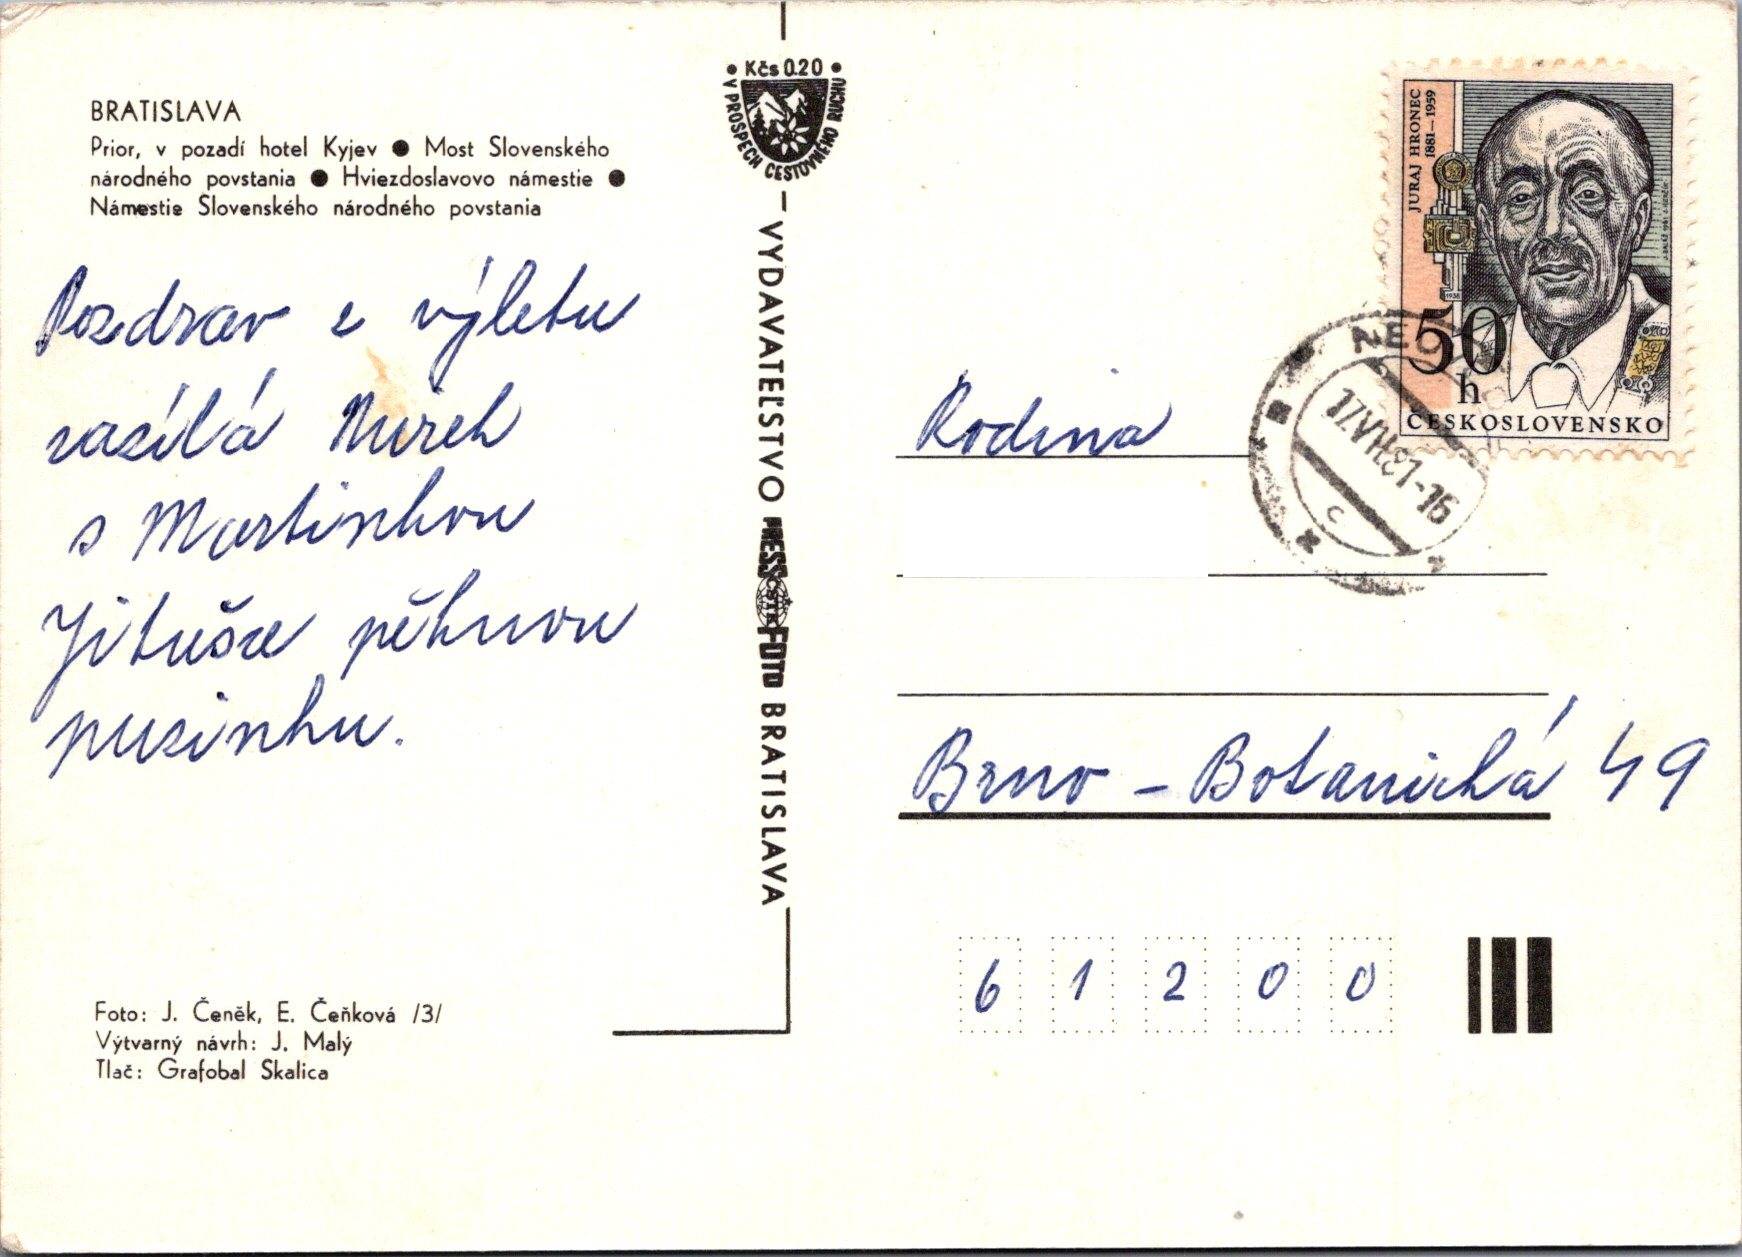 BRATISLAVA
Prior, v pozadí hotel Kyjev ● Most Slovenského
národného povstania ● Hviezdoslavovo námestie ●
Námestie Slovenského národného povstania
Pozdrav z výletu
zasílá Mirek
s Martinkou
Jitušce pěknou
pusinku.
Foto: J. Čeněk, E. Čeňková /3/
Výtvarný návrh: J. Malý
Tlač: Grafobal Skalica
• Kčs 0.20 •
V PROSPECH CESTOVNÉHO RUCHU
VYDAVATEĽSTVO PRESSFOTO BRATISLAVA
JURAJ HRONEC
1881–1959
1938
50
h
ČESKOSLOVENSKO
17.VII.81-16
C
Rodina
Brno - Botanická 49
6 1 2 0 0